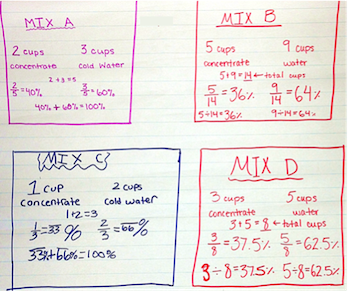 MIX A
2 cups 3 cups
concentrate cold water
2+3=5
2/5=40% 3/5=60%
40% + 60%=100%
MIX B
5 cups 9 cups
concentrate water
5+9=14 ← total cups
5/14=36% 9/14=64%
5÷14=36% 9÷14=64%
{MIX C}
1 cup 2 cups
concentrate cold water
1+2=3
1/3=33% 2/3=66%
33%+66%=100%
MIX D
3 cups 5 cups
concentrate water
3+5=8 ← total cups
3/8=37.5% 5/8=62.5%
3÷8=37.5% 5÷8=62.5%